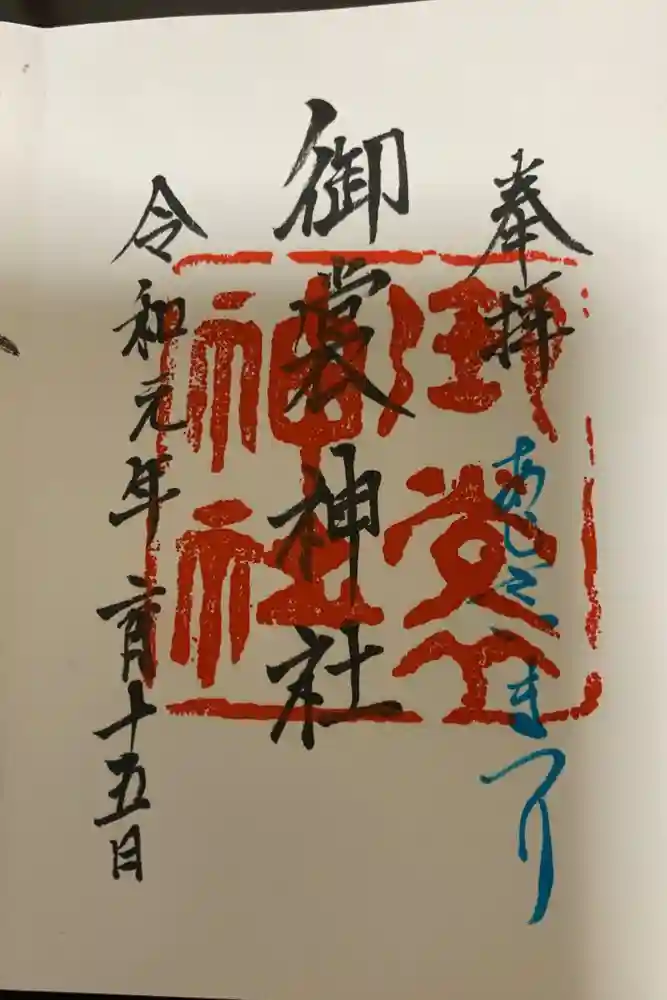 奉拝
あじさいまつり
御裳神社
御裳神社
令和元年六月十五日